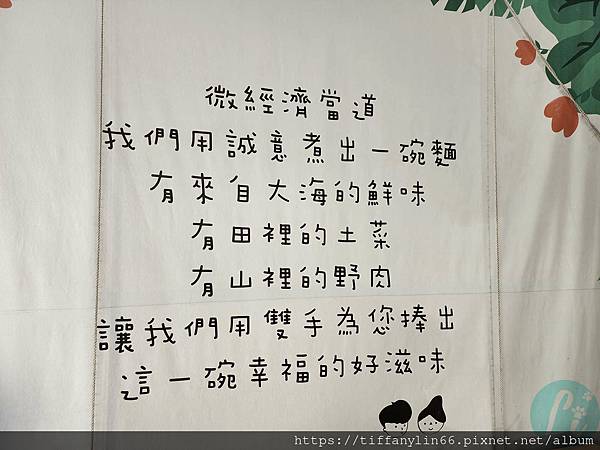 微經濟當道
我們用誠意煮出一碗麵
有來自大海的鮮味
有田裡的土菜
有山裡的野肉
讓我們用雙手為您捧出
這一碗幸福的好滋味
https://tiffanylin66.pixnet.net/album